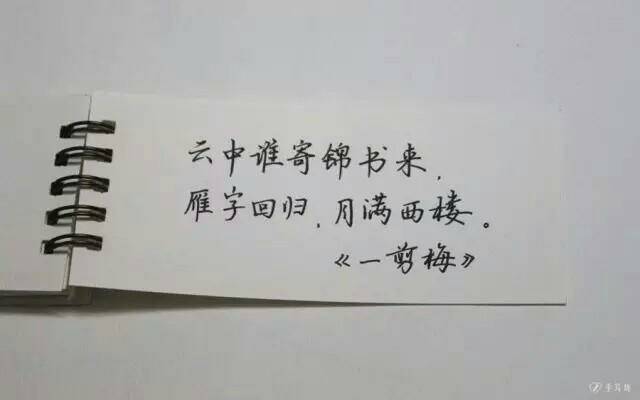 云中谁寄锦书来，
雁字回归，月满西楼。
《一剪梅》
手写场